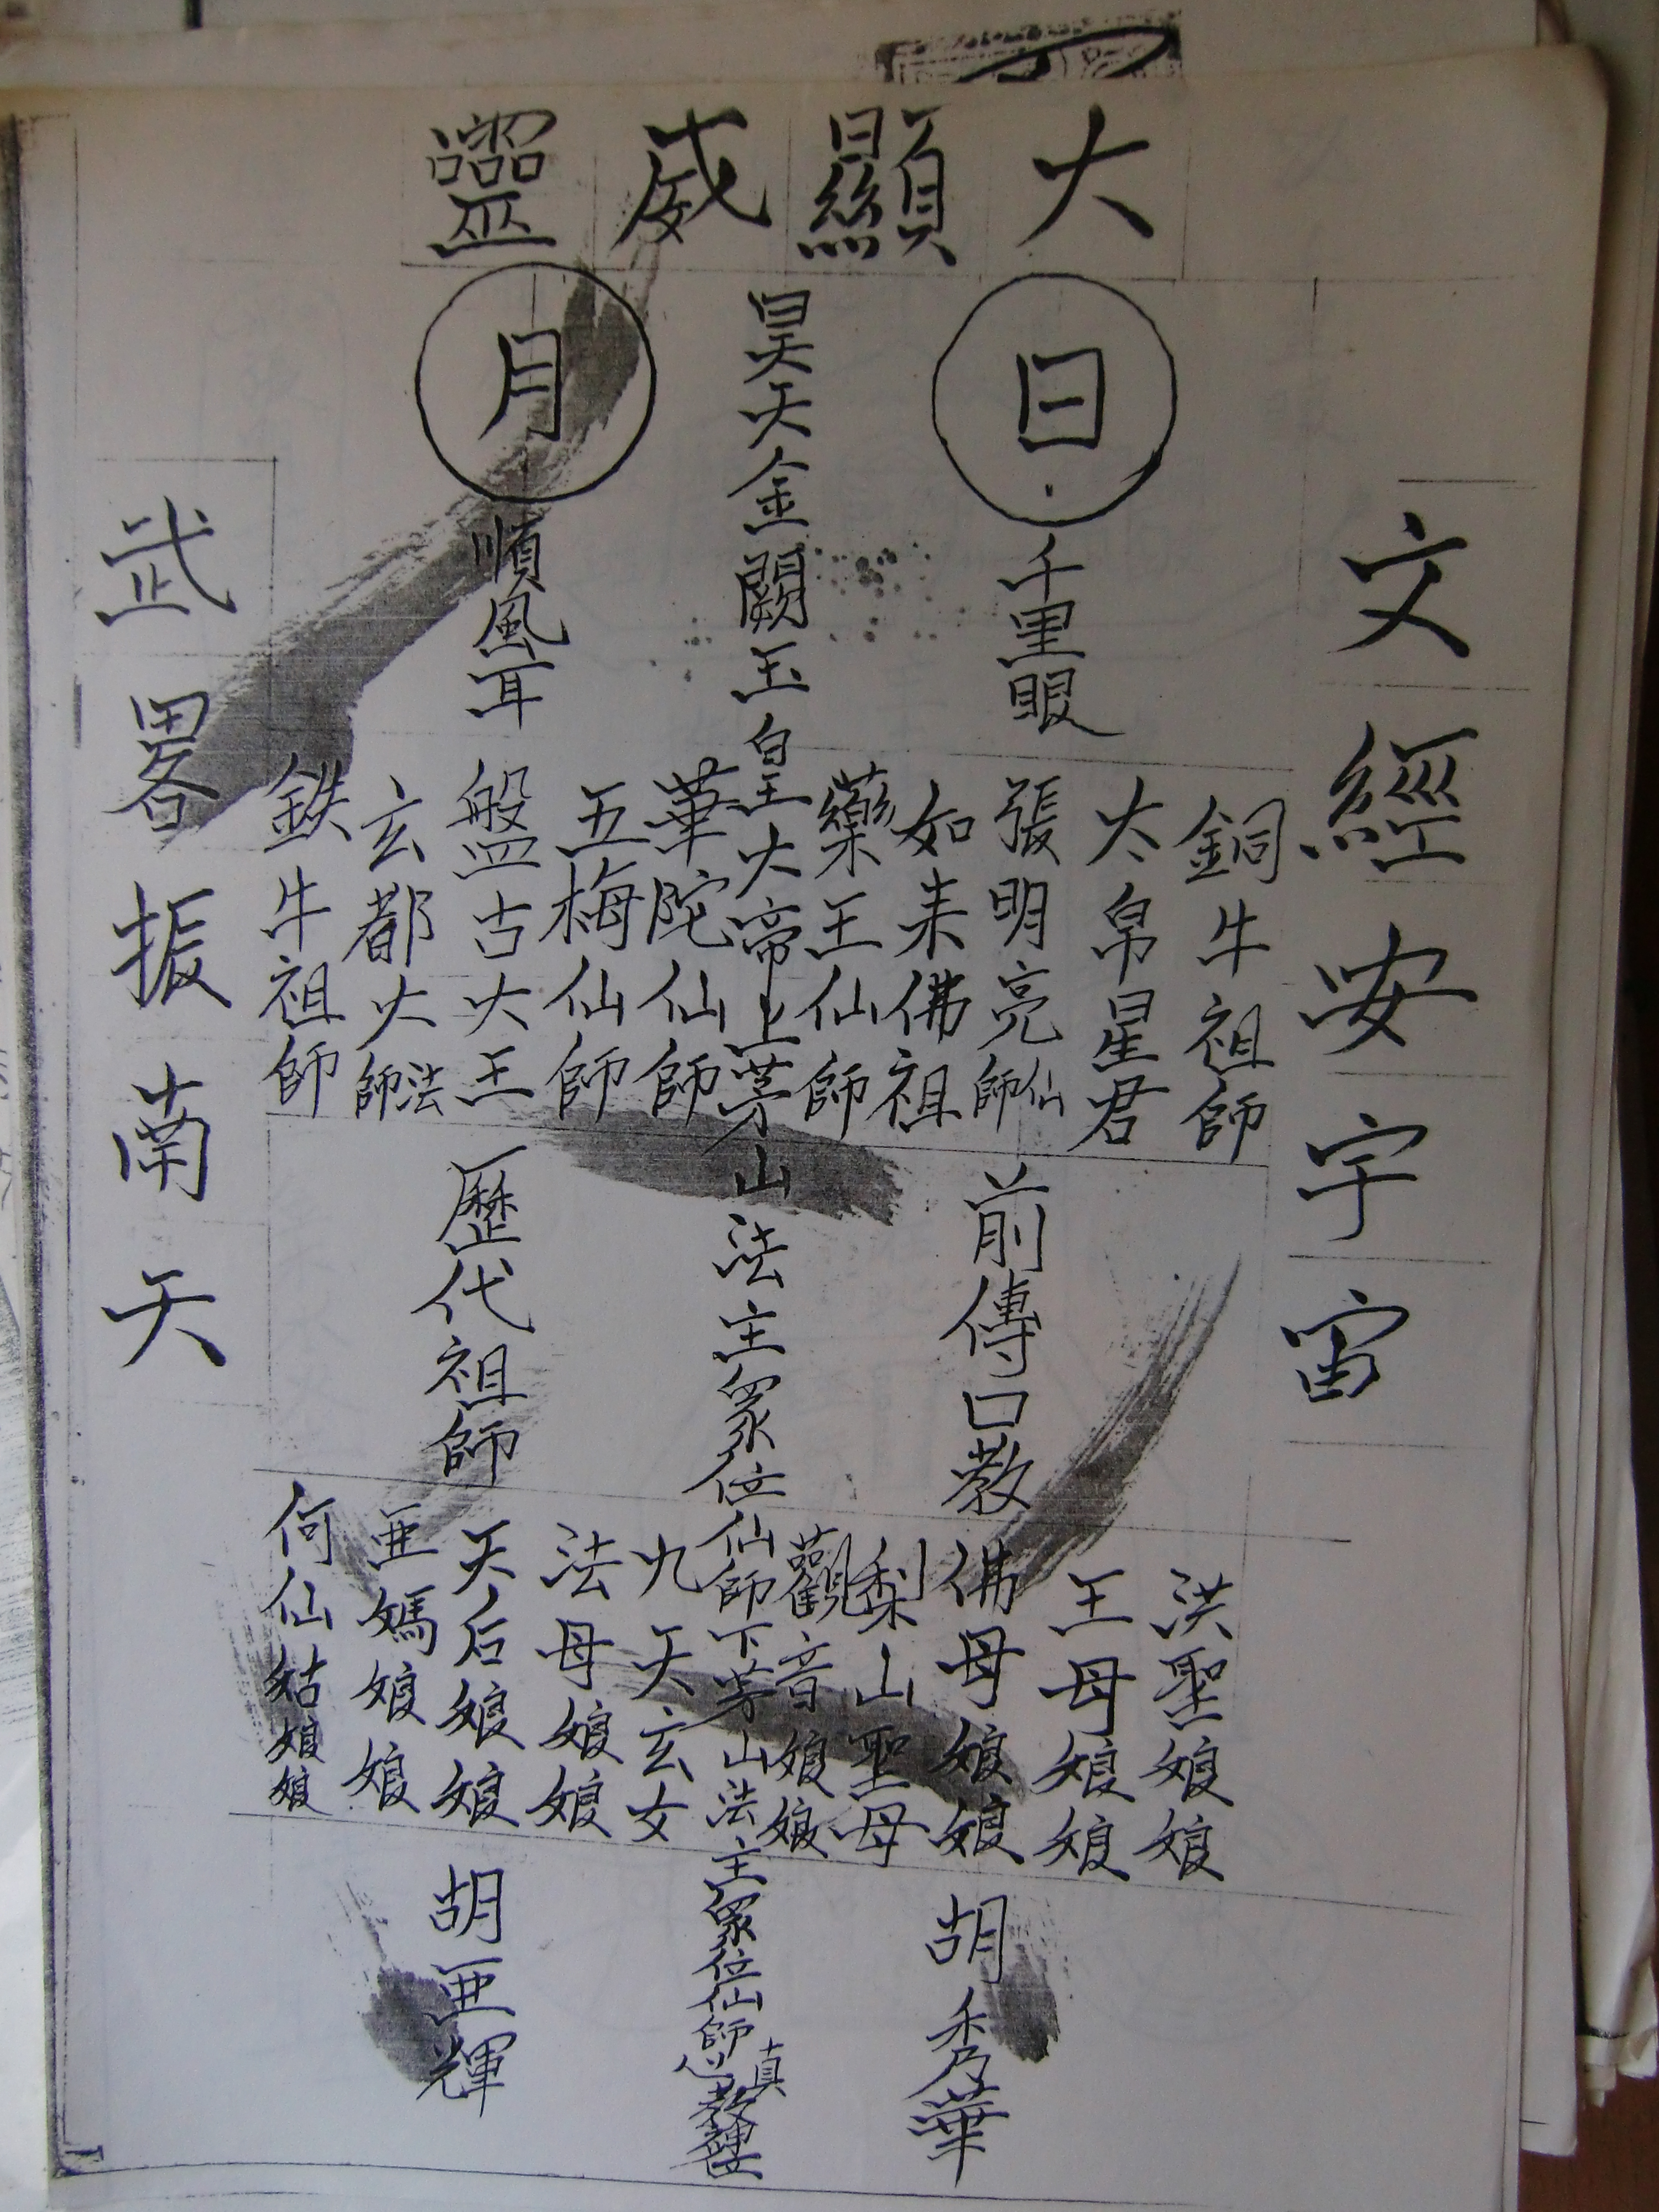 大顯威靈
文經安宇宙
日
千里眼
銅牛祖師
太帛星君
張明亮仙師
如来佛祖
藥王仙師
前傳口教
洪聖娘娘
王母娘娘
佛母娘娘
梨山聖母
觀音娘娘
胡秀華
昊天金闕玉皇大帝上茅山法主眾位仙師下茅山法主眾位仙師真心教
月
順風耳
華陀仙師
五梅仙師
盤古大王
玄都大法師
鉄牛祖師
歷代祖師
九天玄女
法母娘娘
天后娘娘
亜媽娘娘
何仙姑娘娘
胡亜輝
武畧振南天